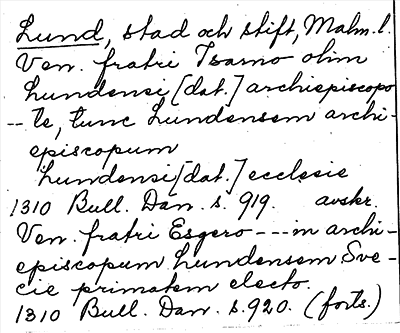 Lund, stad och stift, Malm. l.
Ven. fratri Isarno olim
Lundensi [dat.] archiepiscopo
-- te, tunc Lundensem archi-
episcopum
Lundensi [dat.] ecclesie
1310 Bull. Dan. s. 919. avskr.
Ven. fratri Esgero --- in archi-
episcopum Lundensem Sve-
cie primatem electo.
1310 Bull. Dan. s. 920. (forts.)